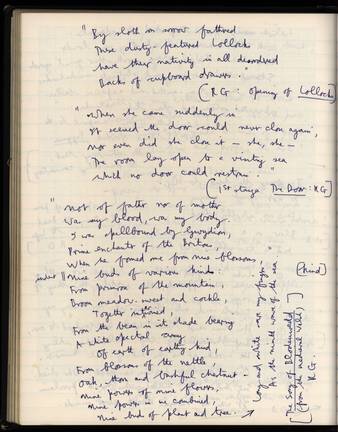 "By sloth on sorrow fathered
These dusty-featured Lollocks
Have their nativity in all disordered
Backs of cupboard drawers."
(R.G: opening of Lollocks)
"When she came suddenly in
It seemed the door could never close again,
Nor even did she close it – she, she –
The room lay open to a visiting sea
Which no door could restrain."
(1st stanza The Door: R.G)
"Not of father nor of mother
Was my blood, was my body.
I was spellbound by Gwydion,
Prime enchanter of the Britons,
When he formed me from nine blossoms,
Nine buds of various kind.
From primrose of the mountain,
Broom, meadow-sweet and cockle,
Together intertwined,
From the bean in its shade bearing
A white spectral army
Of earth, of earthy kind,
From blossoms of the nettle,
Oak, thorn and bashful chestnut –
Nine powers of nine flowers,
Nine powers in me combined,
Nine buds of plant and tree.
Long and white are my fingers
As the ninth wave of the sea.
[kind]
[The Song of Blodeuwedd
(from the medieval Welsh)
R.G.]